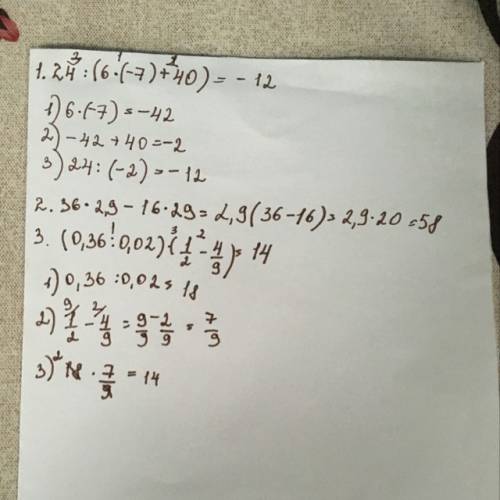 1. 24 : (6 · (-7) + 40) = - 12
1) 6 · (-7) = -42
2) - 42 + 40 = -2
3) 24 : (-2) = - 12
2. 36 · 2,9 - 16 · 29 = 2,9 (36 - 16) = 2,9 · 20 = 58
3. (0,36 : 0,02) · (1/2 - 4/9) = 14
1) 0,36 : 0,02 = 18
2) 1/2 - 4/9 = 9/9 - 2/9 = 7/9
3) 18 · 7/9 = 14